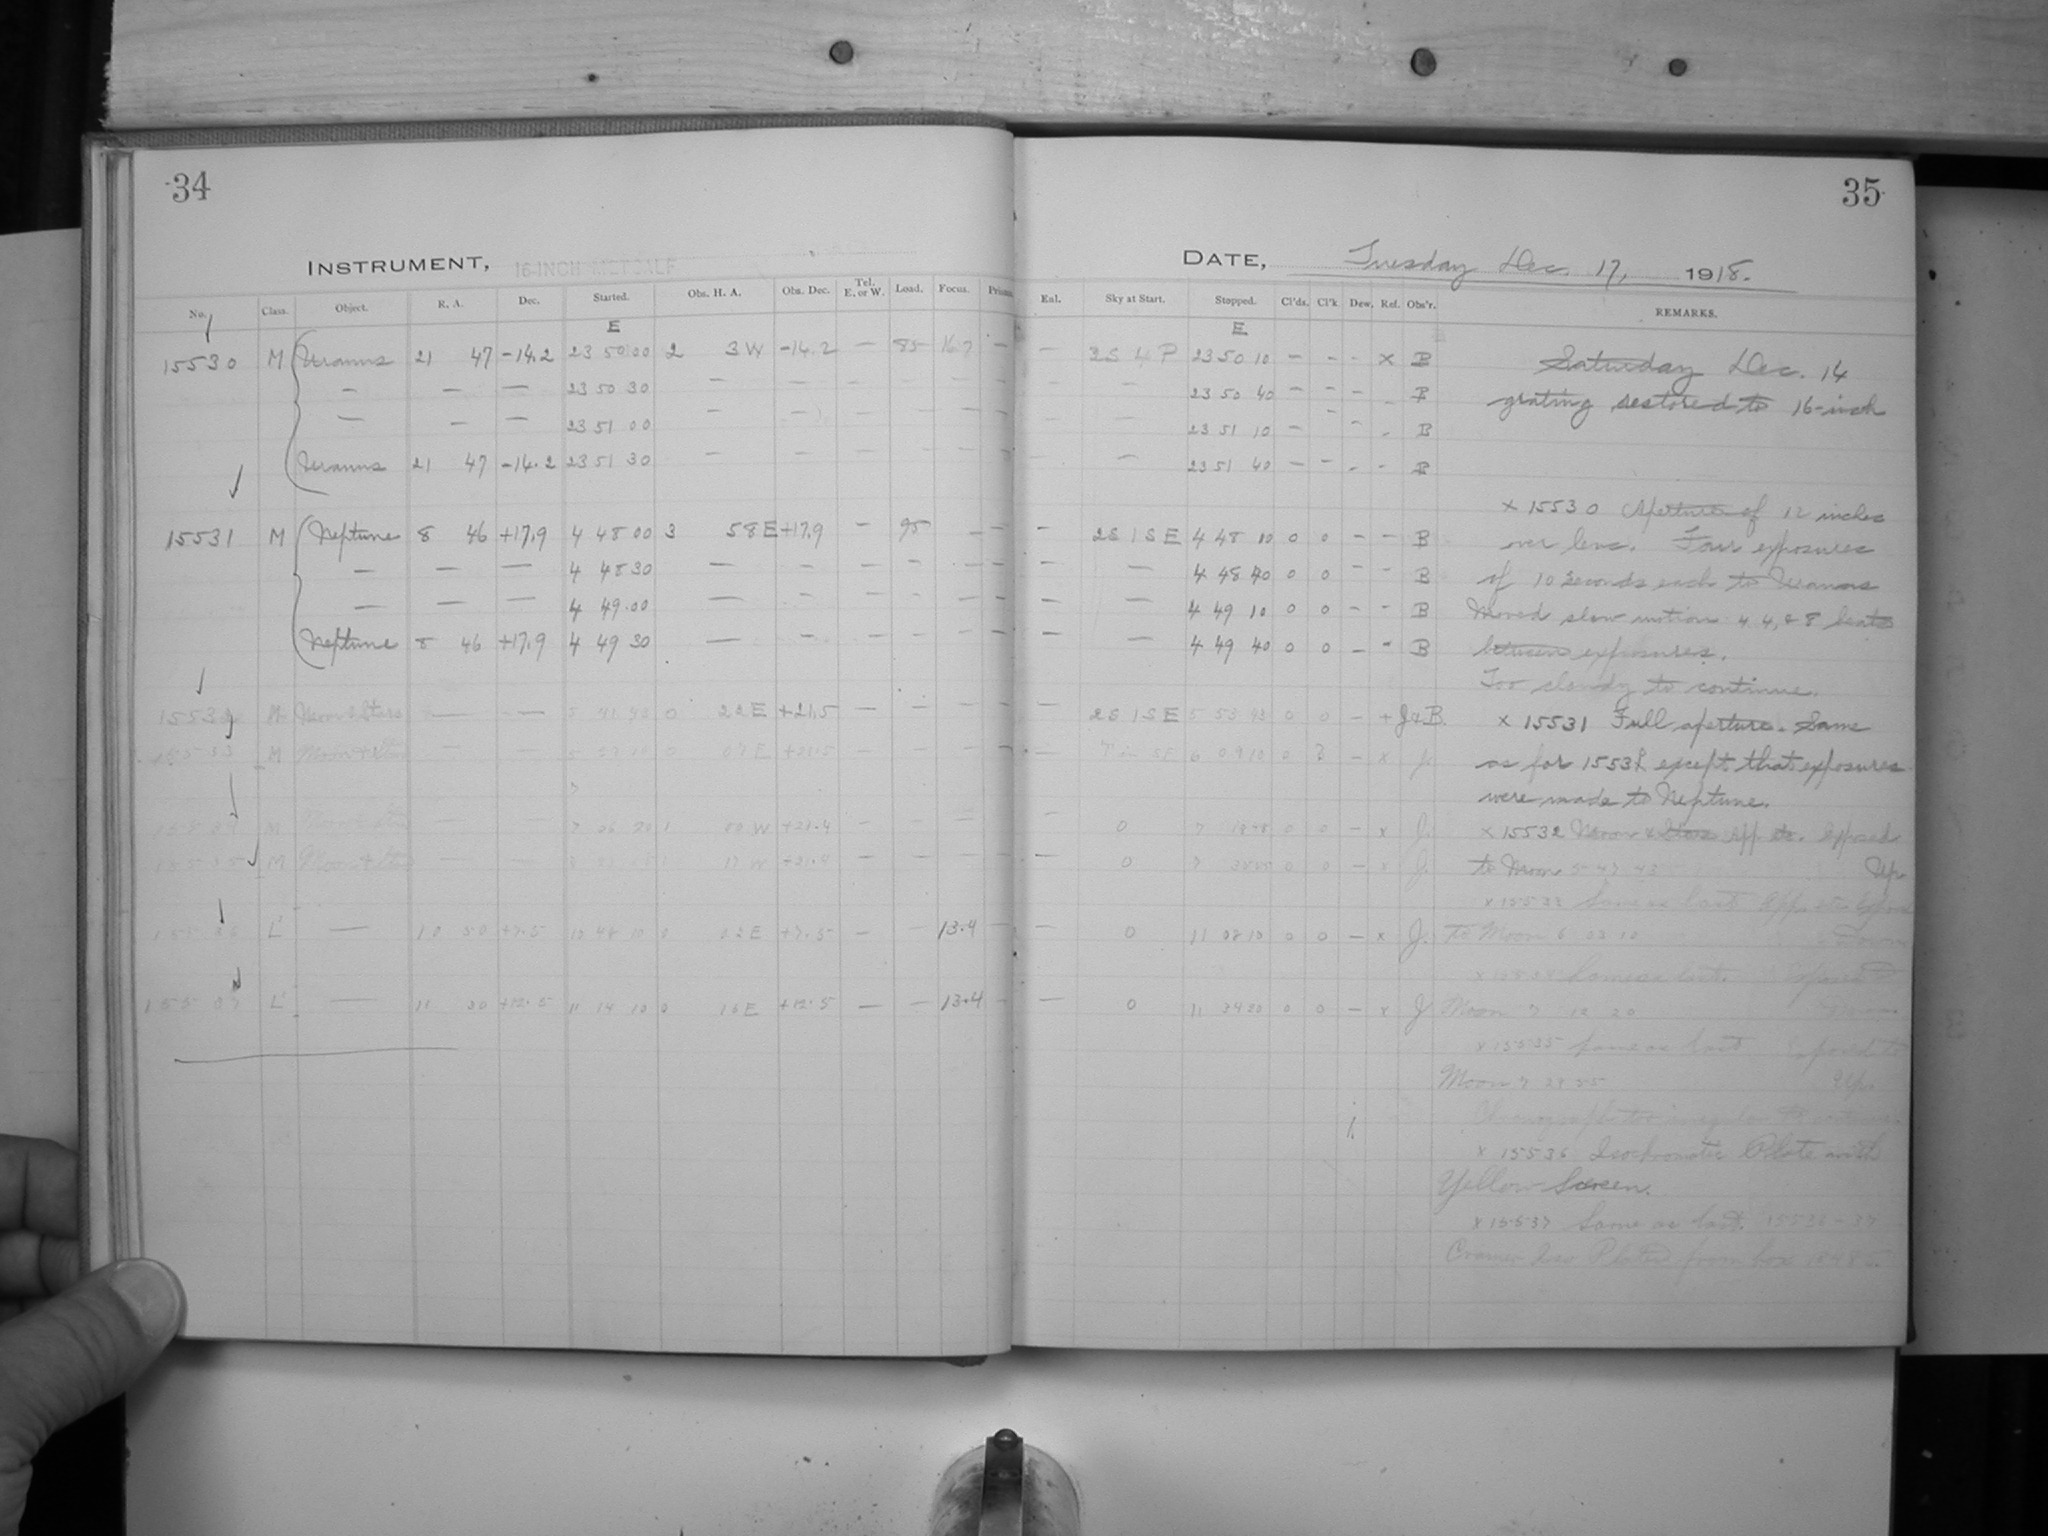 34
INSTRUMENT, 16-INCH METCALF
No. Class. Object. R. A. Dec. Started. Obs. H. A. Obs. Dec. Tel. E. or W. Load. Focus. Prisms.
E
15530 M Uranus 21 47 -14.2 23 50 00 2 3 W -14.2 — 85 16.7 —
— — — 23 50 30 —
— — — 23 51 00 —
Uranus 21 47 -14.2 23 51 30 —
15531 M Neptune 8 46 +17.9 4 48 00 3 58 E +17.9 — 95 — —
— — — 4 48 30 —
— — — 4 49.00 —
Neptune 8 46 +17.9 4 49 30 —
15532 M Moon & Stars — — 5 41 43 0 22 E +21.5 — — — —
15533 M Moon & — — 0 07 E +21.5 — — — —
M — — 7 06 20 1 W +21.4 — — — —
15535 M Moon & — — 17 W +21.4 — — — —
L' — 10 50 +7.5 10 48 10 0 02 E +7.5 — — 13.4
L' — 11 +12.5 11 14 10 0 16 E +12.5 — — 13.4 —
35
DATE, Tuesday Dec. 17, 1918.
Eal. Sky at Start. Stopped. Cl'ds. Cl'k. Dew. Ref. Obs'r. REMARKS.
E
— 2S 4 P 23 50 10 — - - x B
— 23 50 40 — - - B
— 23 51 10 — - - - B
— 23 51 40 — - - - B
— 2S 1 S E 4 48 10 0 0 — — B
— — 4 48 40 0 0 - - B
— — 4 49 10 0 0 - - B
— — 4 49 40 0 0 — - B
2S 1 S E 5 53 43 0 0 — + J&B.
— 6 09 10 0 — x J.
— 0 7 0 0 — x J.
— 0 7 0 0 — x J.
— 0 11 08 10 0 0 — x J.
— 0 11 34 20 0 0 — x J
Saturday Dec. 14
grating restored to 16-inch
x 15530 Aperture of 12 inches
over lens. Four exposures
of 10 seconds each to Uranus
Moved slow motion 4, 4, & 8 beats
between exposures.
Too cloudy to continue.
x 15531 Full aperture. Same
as for 1553 except that exposures
were made to Neptune.
x 15532 Moon & Stars App. etc. Exposed
to Moon 5 47 43 Up
x 15533 Same as last App. etc. Exposed
To Moon 6 03 10 Down
Same as last. Exposed
Moon 7 12 20
x 15535 Same as last. Exposed to
Moon 7 Up.
Chronograph too irregular to continue.
x 15536 Isochromatic Plate with
Yellow Screen.
x 15537 Same as last. 15536-37
Cramer Iso Plates from box